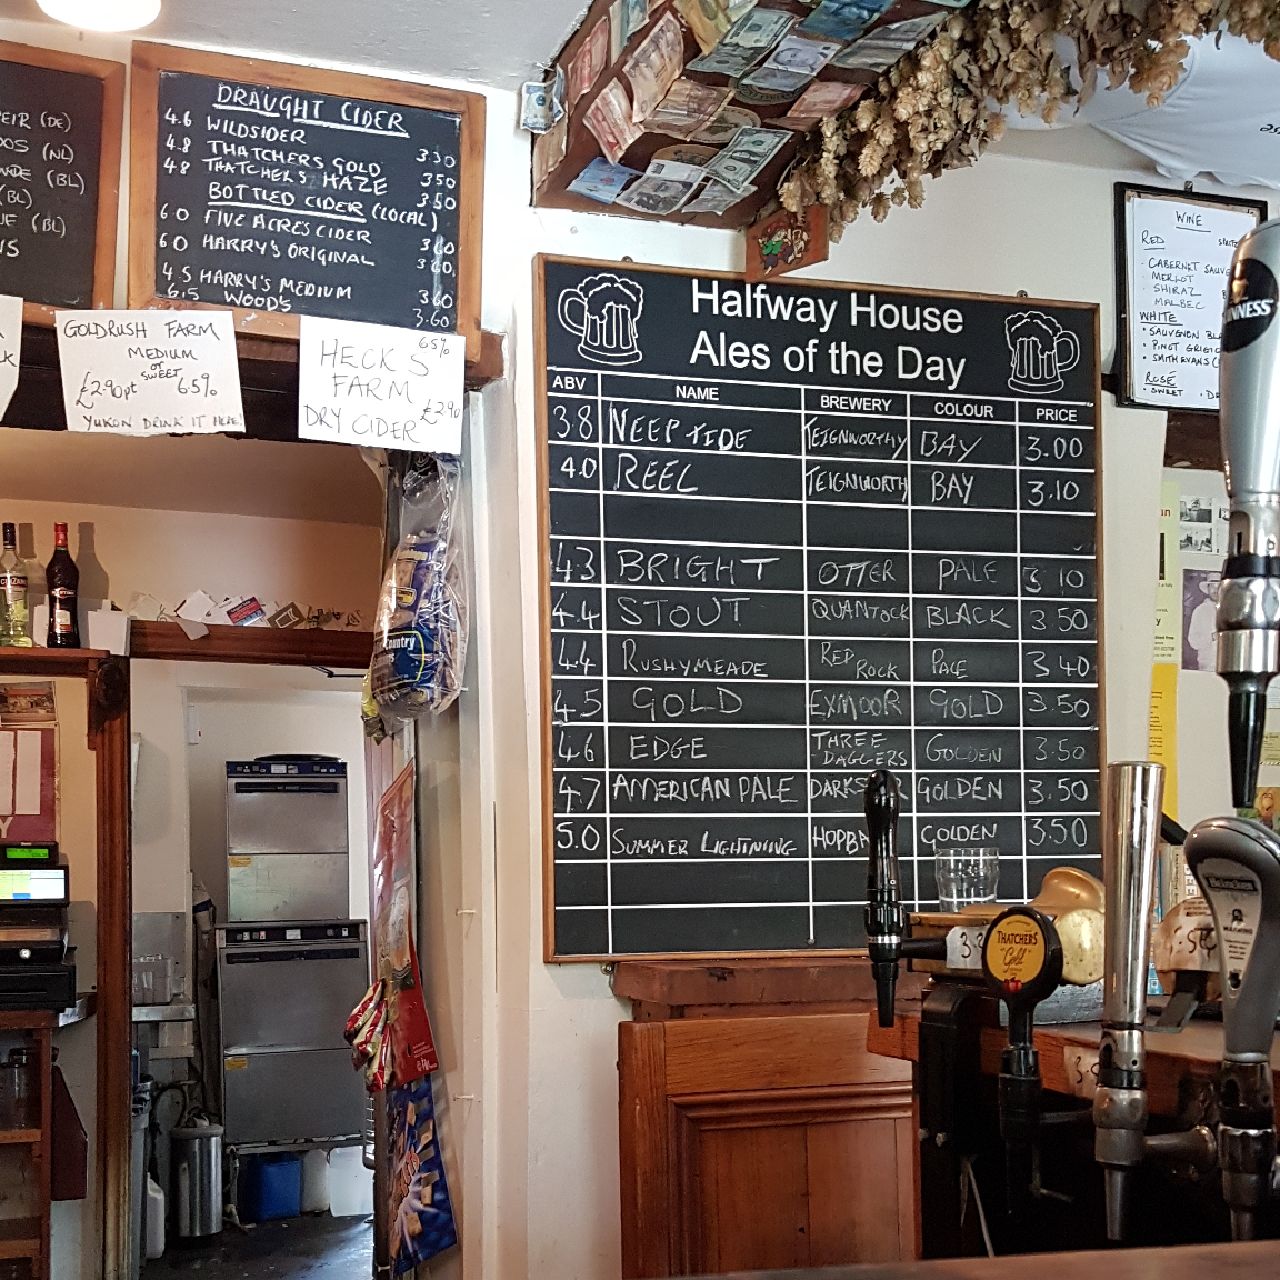 (DE)
(NL)
(BL)
(BL)
(BL)
DRAUGHT CIDER
4.6 WILDSIDER 3 30
4.8 THATCHERS GOLD 3 50
4 8 THATCHERS HAZE 3 50
BOTTLED CIDER (LOCAL)
6.0 FIVE ACRES CIDER 3 60
6 0 HARRY'S ORIGINAL 3 60
4.5 HARRY'S MEDIUM 3 60
6.5 WOOD'S 3.60
GOLDRUSH FARM
MEDIUM
OR
SWEET
£2.90pt 65%
YUKON DRINK IT HERE!
HECK'S 65%
FARM
DRY CIDER £2.90
Halfway House
Ales of the Day
ABV NAME BREWERY COLOUR PRICE
3 8 NEEP TIDE TEIGNWORTHY BAY 3.00
4.0 REEL TEIGNWORTH BAY 3.10
4.3 BRIGHT OTTER PALE 3 10
4.4 STOUT QUANTOCK BLACK 3 50
4.4 RUSHYMEADE RED ROCK PALE 3 40
4.5 GOLD EXMOOR GOLD 3.50
4.6 EDGE THREE DAGGERS GOLDEN 3.50
4.7 AMERICAN PALE GOLDEN 3.50
5.0 SUMMER LIGHTNING GOLDEN 3.50
WINE
RED
CABERNET
MERLOT
SHIRAZ
MALBEC
WHITE
SAUVIGNON
PINOT GRIGIO
ROSÉ
SWEET
THATCHERS
Gold